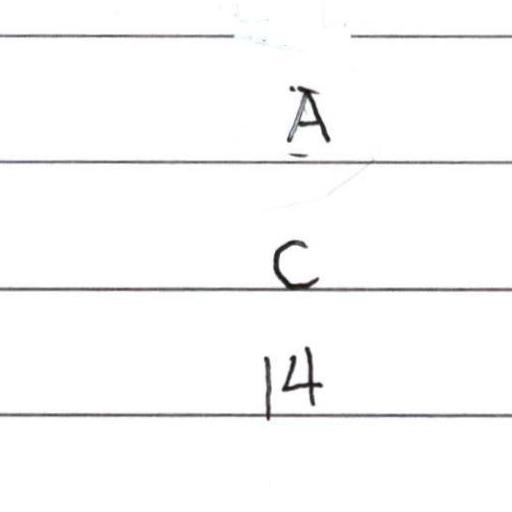 A
C
14